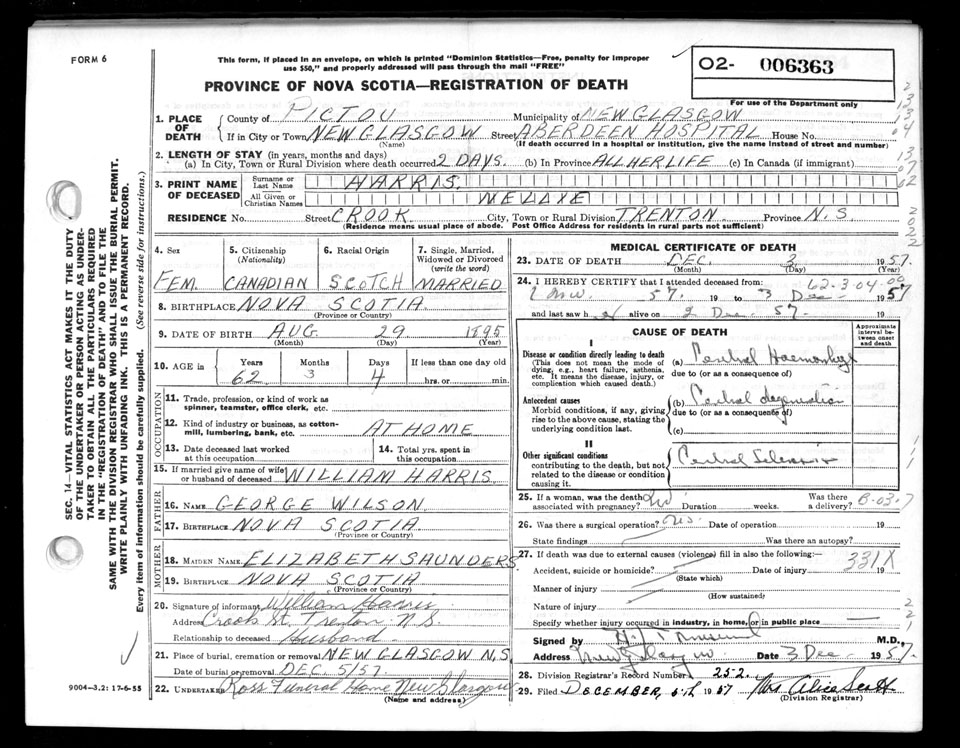 FORM 6
This form, if placed in an envelope, on which is printed "Dominion Statistics—Free, penalty for improper
use $50," and properly addressed will pass through the mail "FREE"
PROVINCE OF NOVA SCOTIA—REGISTRATION OF DEATH
02- 006363
For use of the Department only
1. PLACE OF DEATH
County of PICTOU Municipality of NEW GLASGOW
If in City or Town NEW GLASGOW Street ABERDEEN HOSPITAL House No.
(Name) (If death occurred in a hospital or institution, give the name instead of street and number)
2. LENGTH OF STAY (in years, months and days)
(a) In City, Town or Rural Division where death occurred 2 DAYS. (b) In Province ALL HER LIFE (c) In Canada (if immigrant)
3. PRINT NAME OF DECEASED
Surname or Last Name HARRIS.
All Given or Christian Names NELLIE
RESIDENCE No. Street CROOK City, Town or Rural Division TRENTON. Province N.S.
(Residence means usual place of abode. Post Office Address for residents in rural parts not sufficient)
4. Sex FEM.
5. Citizenship (Nationality) CANADIAN
6. Racial Origin SCOTCH
7. Single, Married, Widowed or Divorced (write the word) MARRIED
8. BIRTHPLACE NOVA SCOTIA
(Province or Country)
9. DATE OF BIRTH AUG. 29 1895
(Month) (Day) (Year)
10. AGE in Years 62 Months 3 Days 4 If less than one day old
hrs. or min.
OCCUPATION
11. Trade, profession, or kind of work as spinner, teamster, office clerk, etc.
12. Kind of industry or business, as cotton-mill, lumbering, bank, etc. AT HOME
13. Date deceased last worked at this occupation
14. Total yrs. spent in this occupation
15. If married give name of wife or husband of deceased WILLIAM HARRIS
FATHER
16. NAME GEORGE WILSON.
17. BIRTHPLACE NOVA SCOTIA
(Province or Country)
MOTHER
18. MAIDEN NAME ELIZABETH SAUNDERS
19. BIRTHPLACE NOVA SCOTIA
(Province or Country)
20. Signature of informant William Harris
Address Crook St. Trenton N.S.
Relationship to deceased Husband
21. Place of burial, cremation or removal NEW GLASGOW N.S.
Date of burial or removal DEC. 5/57
22. UNDERTAKER Ross Funeral Home New Glasgow
(Name and address)
MEDICAL CERTIFICATE OF DEATH
23. DATE OF DEATH DEC. 3 1957
(Month) (Day) (Year)
24. I HEREBY CERTIFY that I attended deceased from:
62-3-04-05
57. 19 to 3 Dec 1957
and last saw h alive on 2 Dec 57. 19
CAUSE OF DEATH
Approximate interval between onset and death
I
Disease or condition directly leading to death
(This does not mean the mode of dying, e.g., heart failure, asthenia, etc. It means the disease, injury, or complication which caused death.)
(a)
due to (or as a consequence of)
Antecedent causes
Morbid conditions, if any, giving rise to the above cause, stating the underlying condition last.
(b) degeneration
due to (or as a consequence of)
(c)
II
Other significant conditions
contributing to the death, but not related to the disease or condition causing it.
25. If a woman, was the death associated with pregnancy? No Duration weeks. Was there a delivery?
B-03-7
26. Was there a surgical operation? No. Date of operation 19
State findings Was there an autopsy?
27. If death was due to external causes (violence) fill in also the following:—
331X
Accident, suicide or homicide? Date of injury 19
(State which)
Manner of injury
(How sustained)
Nature of injury
Specify whether injury occurred in industry, in home, or in public place
Signed by M.D.,
Address New Glasgow Date 3 Dec 1957.
28. Division Registrar's Record Number 252.
29. Filed DECEMBER, 5th 1957 Mrs Alice Scott
(Division Registrar)
SEC. 14—VITAL STATISTICS ACT MAKES IT THE DUTY
OF THE UNDERTAKER OR PERSON ACTING AS UNDER-
TAKER TO OBTAIN ALL THE PARTICULARS REQUIRED
IN THE "REGISTRATION OF DEATH" AND TO FILE THE
SAME WITH THE DIVISION REGISTRAR WHO SHALL ISSUE THE BURIAL PERMIT.
WRITE PLAINLY WITH UNFADING INK. THIS IS A PERMANENT RECORD.
Every item of information should be carefully supplied. (See reverse side for instructions.)
9004—3.2: 17-6-55